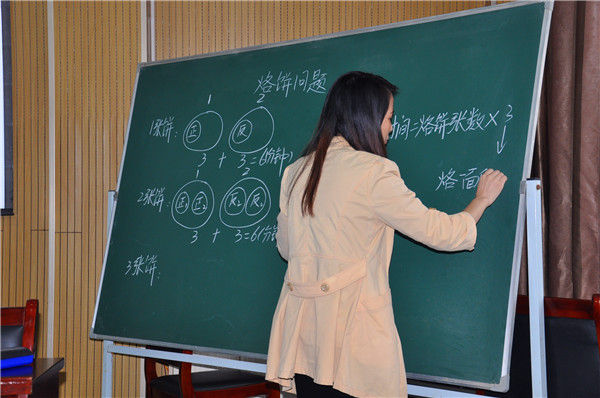 烙饼问题
1 2
1张饼: 正 反
3 + 3 = 6(分钟)
1 2
2张饼: 正₁ 正₂ 反₁ 反₂
3 + 3 = 6(分钟
3张饼:
间=烙饼张数×3
↓
烙一面